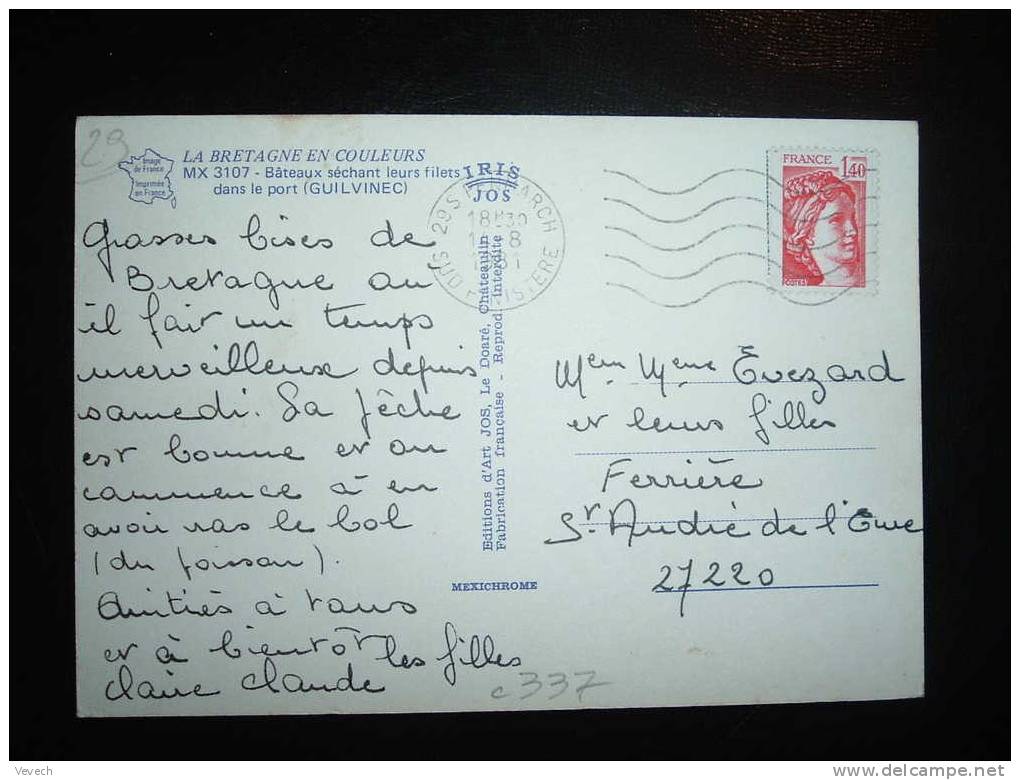 29
Image de France
Imprimée en France
LA BRETAGNE EN COULEURS
MX 3107 - Bâteaux séchant leurs filets
dans le port (GUILVINEC)
IRIS
JOS
29 S PENMARCH
18H30
8
1981
SUD FINISTERE
FRANCE
1,40
POSTES
Grosses bises de
Bretagne où
il fait un temps
merveilleux depuis
samedi. La pêche
est bonne et on
commence à en
avoir ras le bol
(du poisson).
Amitiés à tous
et à bientôt les filles
Claire Claude
Editions d'Art JOS, Le Doaré, Châteaulin
Fabrication française - Reprod. Interdite
MEXICHROME
M et Mme Evezard
et leurs filles
Ferrière
St. André de l'Eure
27220
c337
Vevech
delcampe.net